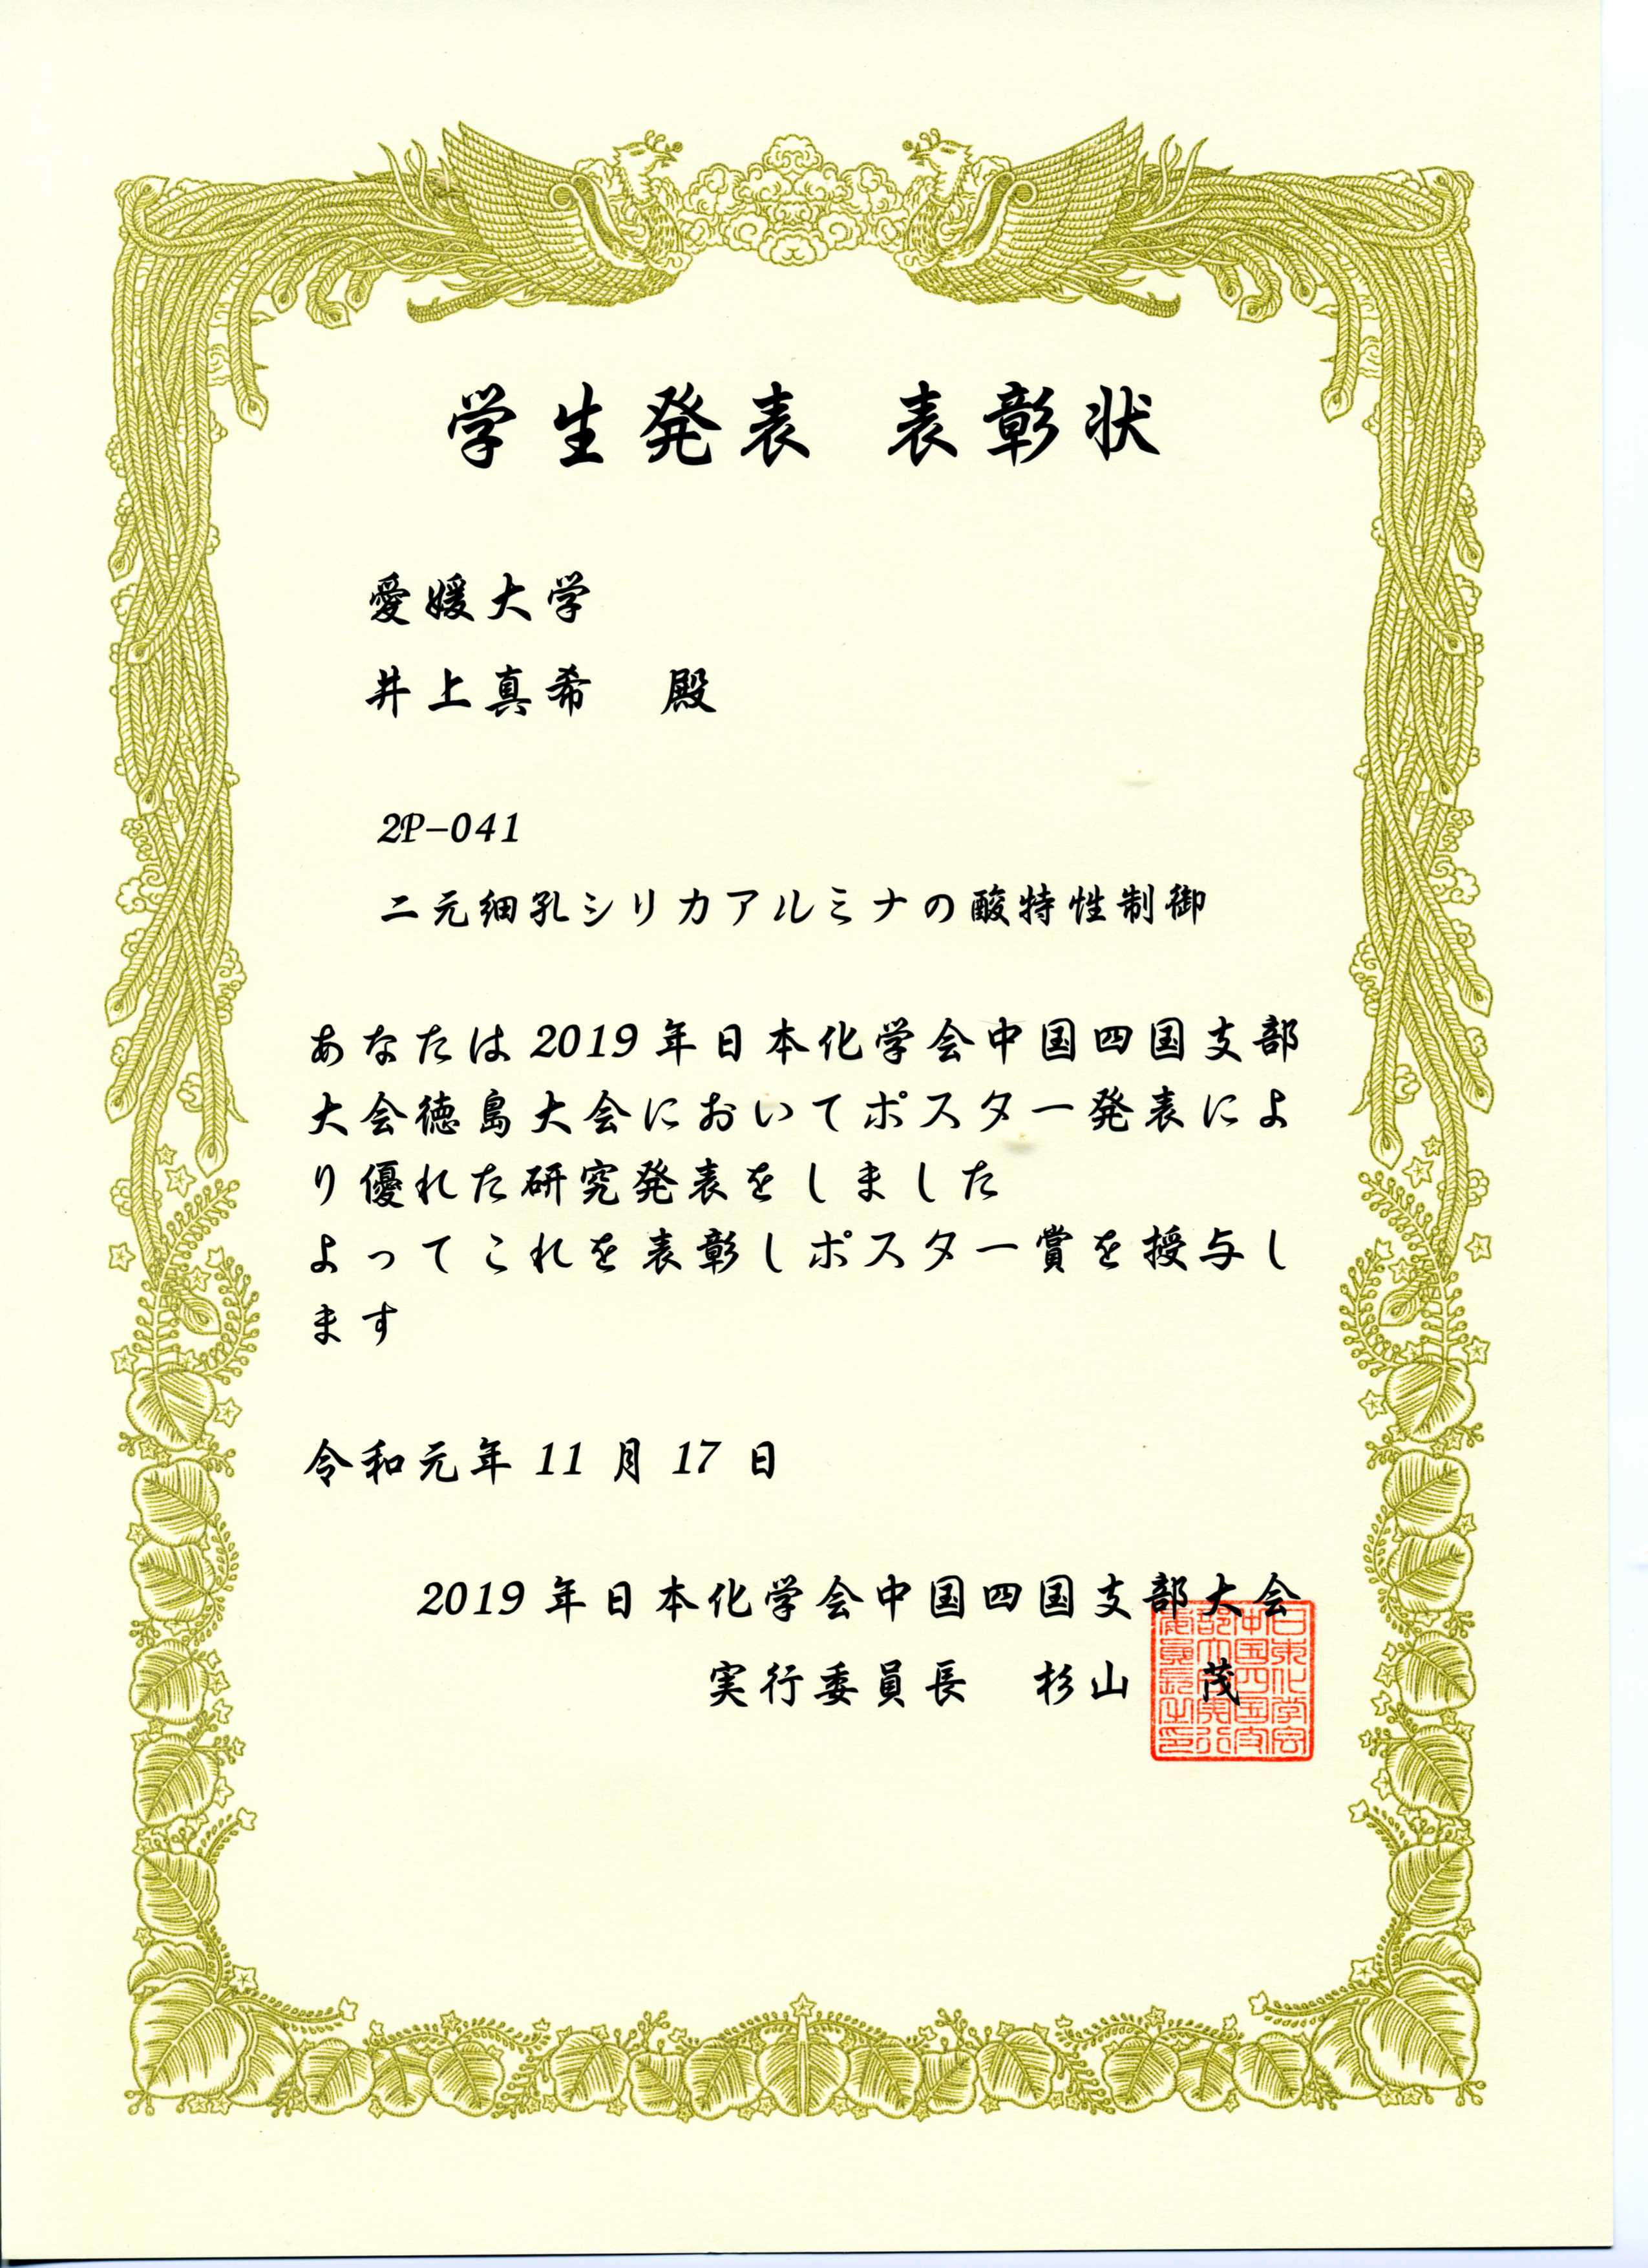 学生発表 表彰状
愛媛大学
井上真希 殿
2P-041
二元細孔シリカアルミナの酸特性制御
あなたは2019年日本化学会中国四国支部
大会徳島大会においてポスター発表によ
り優れた研究発表をしました
よってこれを表彰しポスター賞を授与し
ます
令和元年11月17日
2019年日本化学会中国四国支部大会
実行委員長 杉山 茂